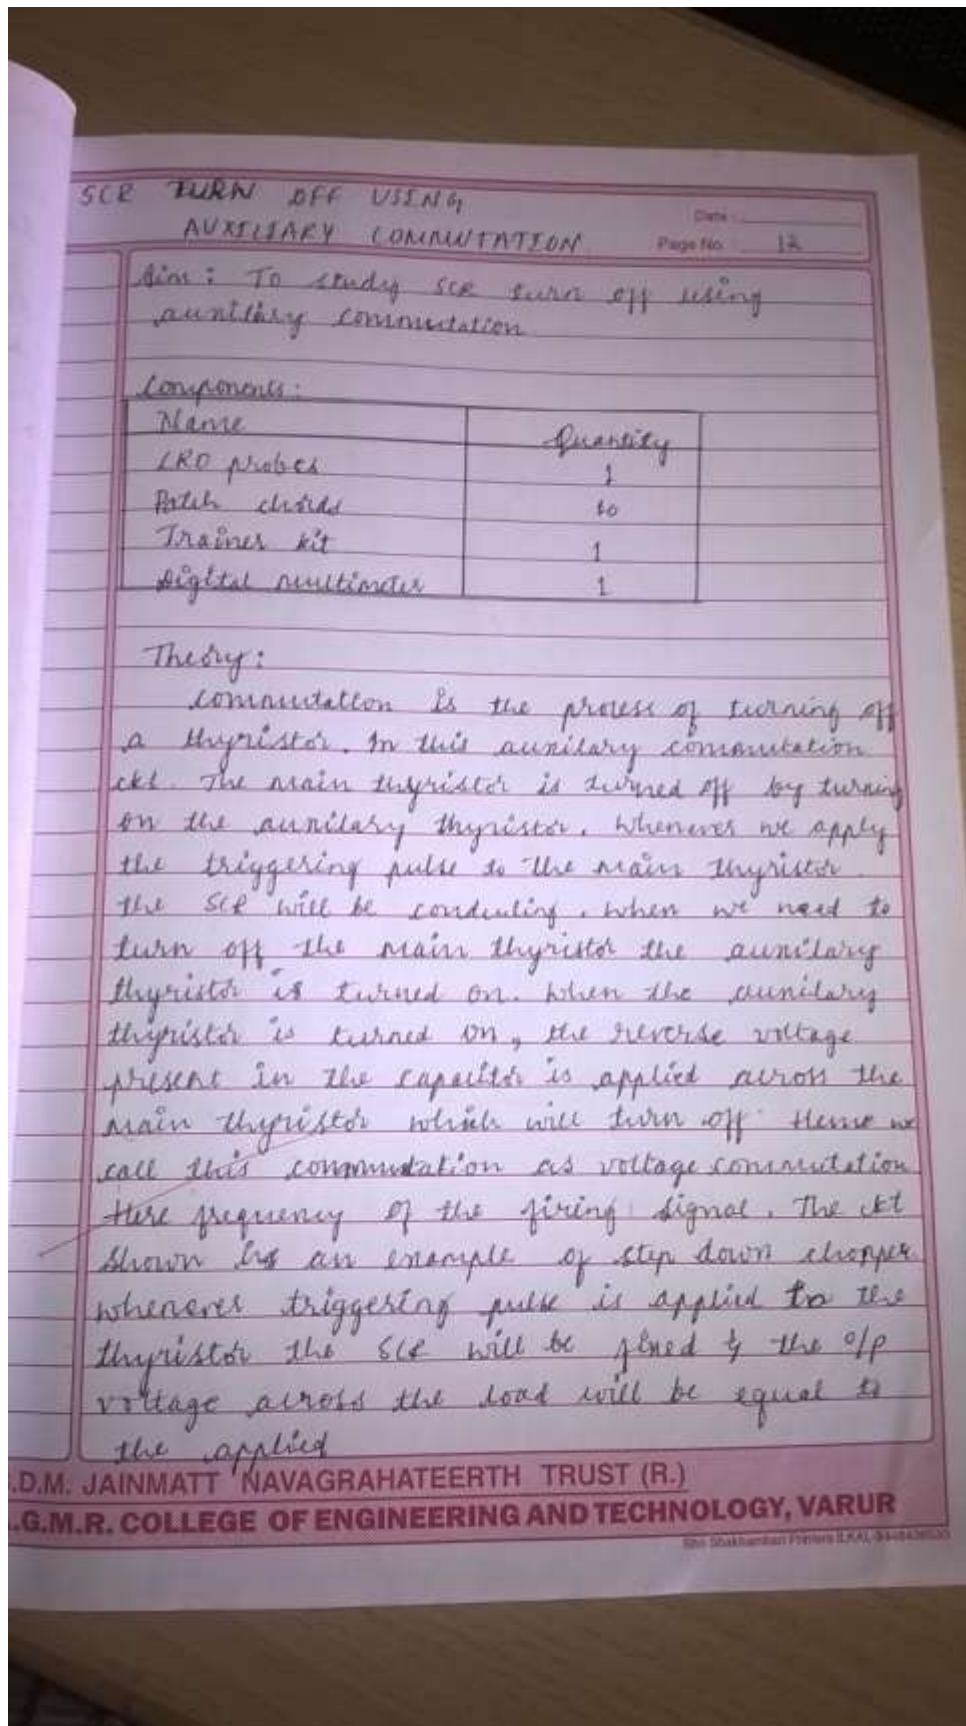 SCR TURN OFF USING
AUXILIARY COMMUTATION
Date :
Page No. 12
Aim : To study SCR turn off using
auxiliary commutation
Components :
Name Quantity
CRO probes 1
Patch chords 10
Trainer kit 1
Digital multimeter 1
Theory :
Commutation is the process of turning off
a thyristor. In this auxilary commutation
ckt. The main thyristor is turned off by turning
on the auxilary thyristor. Whenever we apply
the triggering pulse to the main thyristor.
the SCR will be conducting. When we need to
turn off the main thyristor the auxilary
thyristor is turned on. When the auxilary
thyristor is turned on, the reverse voltage
present in the capacitor is applied across the
main thyristor which will turn off. Hence we
call this commutation as voltage commutation
Here frequency of the firing signal. The ckt
shown is an example of step down chopper
whenever triggering pulse is applied to the
thyristor the SCR will be fired & the o/p
voltage across the load will be equal to
the applied
.D.M. JAINMATT NAVAGRAHATEERTH TRUST (R.)
.G.M.R. COLLEGE OF ENGINEERING AND TECHNOLOGY, VARUR
Shri Shakhambari Printers ILKAL